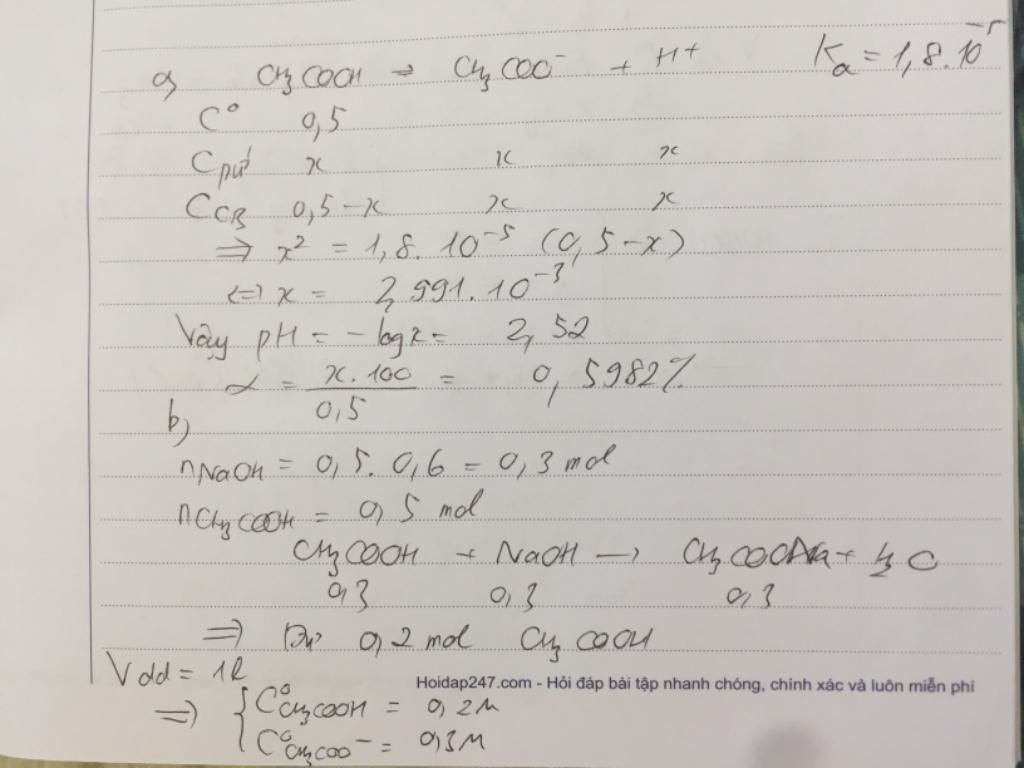 a, CH3COOH ⇌ CH3COO⁻ + H⁺ Ka = 1,8.10⁻⁵
C° 0,5
Cpứ x x x
CCB 0,5-x x x
⇒ x² = 1,8.10⁻⁵ (0,5-x)
⇔ x = 2,991.10⁻³
Vậy pH = -logx = 2,52
α = x.100/0,5 = 0,5982%
b,
nNaOH = 0,5.0,6 = 0,3 mol
nCH3COOH = 0,5 mol
CH3COOH + NaOH → CH3COONa + H2O
0,3 0,3 0,3
⇒ Dư 0,2 mol CH3COOH
Vdd = 1l
Hoidap247.com - Hỏi đáp bài tập nhanh chóng, chính xác và luôn miễn phí
⇒ { C°CH3COOH = 0,2M
C°CH3COO⁻ = 0,3M